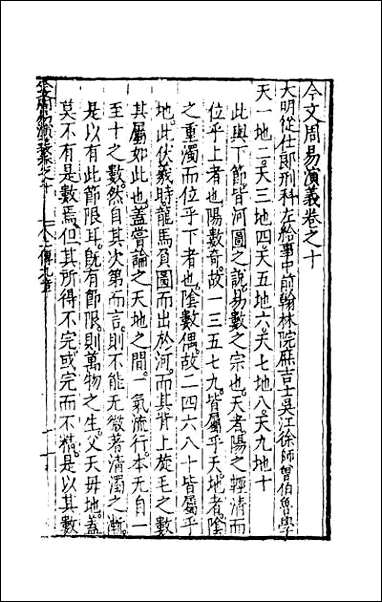 今文周易演義卷之十
大明從仕郎刑科左給事中前翰林院庶吉士吳江徐師曾伯魯學
天一地二。天三地四。天五地六。天七地八。天九地十
此與下節皆河圖之說。易數之宗也。天者。陽之輕清而
位乎上者也。陽數奇。故一三五七九。皆屬乎天。地者。陰
之重濁而位乎下者也。陰數偶。故二四六八十皆屬乎
地。此伏羲時。龍馬負圖而出於河。而其背上旋毛之數
其屬如此也。蓋嘗論之。天地之間。一氣流行。本无自一
至十之數。然自其次第而言。則不能无微著清濁之漸。
是以有此節限耳。旣有節限。則萬物之生。父天母地。蓋
莫不有是數焉。但其所得不完。或完而不精。是以其數
今文周易演義卷之十
上傳九章